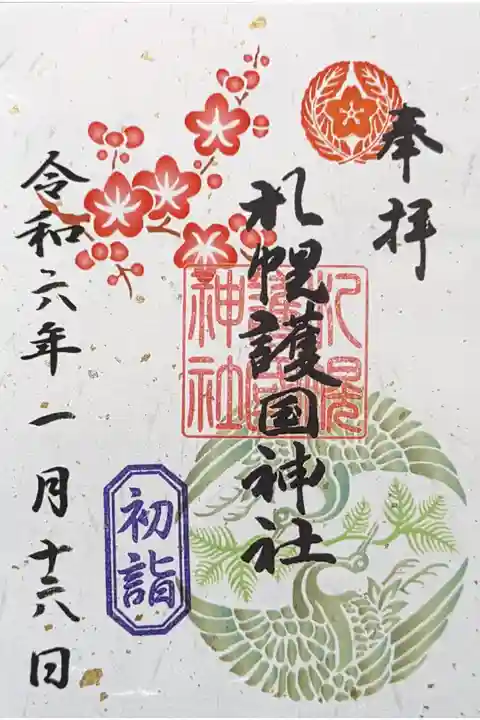 奉拝
札幌護国神社
札幌
護国
神社
令和六年一月十六日
初詣